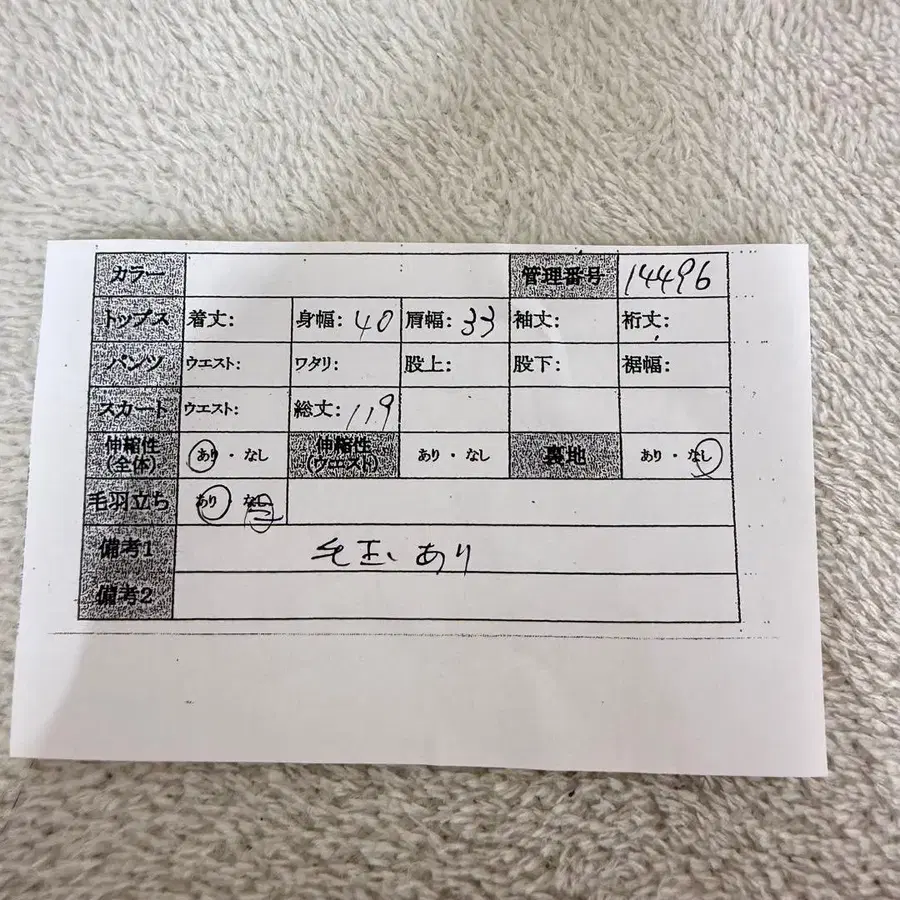 カラー 管理番号 14496
トップス 着丈: 身幅: 40 肩幅: 33 袖丈: 裄丈:
パンツ ウエスト: ワタリ: 股上: 股下: 裾幅:
スカート ウエスト: 総丈: 119
伸縮性(全体) あり・なし 伸縮性(ウエスト) あり・なし 裏地 あり・なし
毛羽立ち あり・なし
備考1 毛玉 あり
備考2